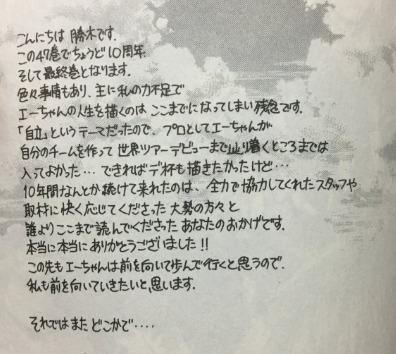 こんにちは 勝木です.
この47巻でちょうど10周年.
そして最終巻となります.
色々事情もあり、主に私の力不足で
エーちゃんの人生を描くのは ここまでになってしまい 残念です.
「自立」というテーマだったので、プロとしてエーちゃんが
自分のチームを作って 世界ツアーデビューまで辿り着くところまでは
入ってよかった… できればデ杯も描きたかったけど…
10年間なんとか続けて来れたのは、全力で協力してくれたスタッフや
取材に快く応じてくださった 大勢の方々と
誰よりここまで読んでくださった あなたのおかげです.
本当に本当にありがとうございました!!
この先もエーちゃんは前を向いて歩んで行くと思うので.
私も前を向いていきたいと思います.
それではまた どこかで‥‥